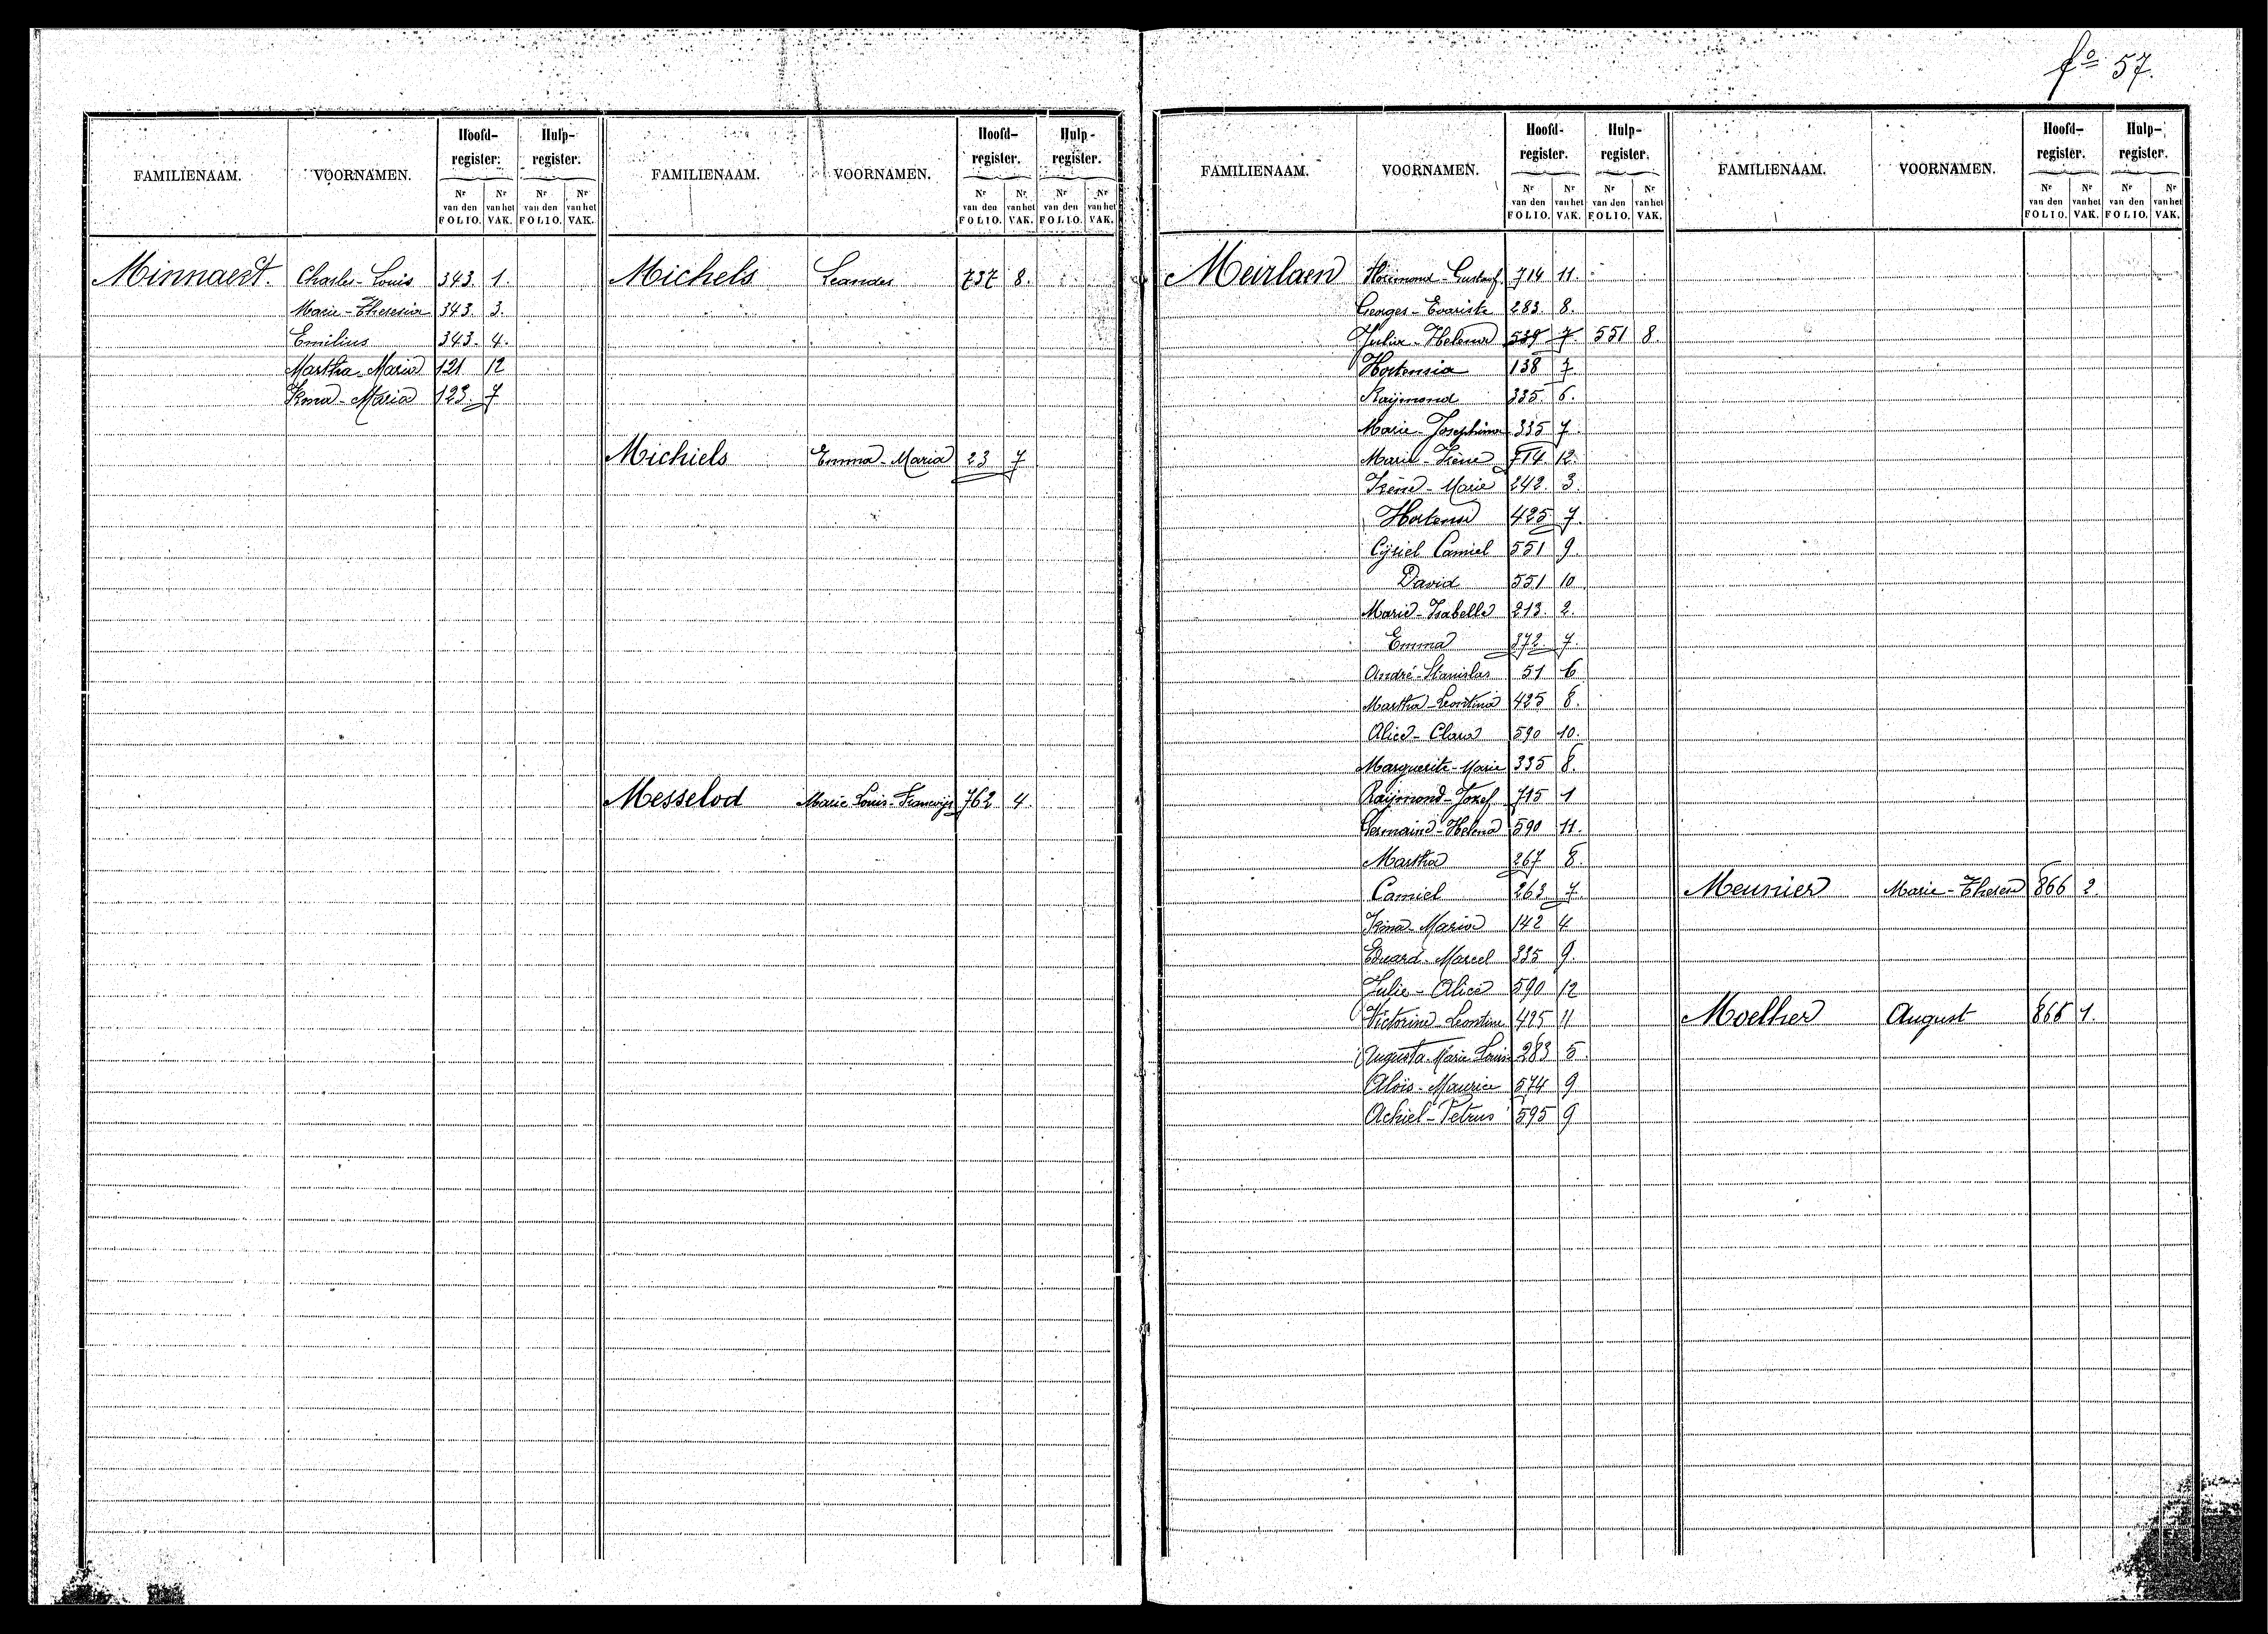 fo 57.
FAMILIENAAM. VOORNAMEN. Hoofd-register. Hulp-register.
Nr van den FOLIO. Nr van het VAK. Nr van den FOLIO. Nr van het VAK.
Minnaert. Charles-Louis 343 1.
Marie-Theresia 343 3.
Emilius 343. 4.
Martha Maria 121 12
Irma-Maria 123. 7
FAMILIENAAM. VOORNAMEN. Hoofd-register. Hulp-register.
Nr van den FOLIO. Nr van het VAK. Nr van den FOLIO. Nr van het VAK.
Michels Leander 737 8.
Michiels Emma-Maria 23 7
Messelod Marie Louis-Franwijs 762 4.
FAMILIENAAM. VOORNAMEN. Hoofd-register. Hulp-register.
Nr van den FOLIO. Nr van het VAK. Nr van den FOLIO. Nr van het VAK.
Meirlaen Florimond-Gustaaf 714 11.
Georges-Evariste 283. 8.
Julia-Helena 539 7. 551 8.
Hortensia 138 7
Raÿmond 335. 6.
Marie-Josephina 335 7
Marie-Irène 714 12.
Irène-Marie 242. 3.
Hortense 425 7.
Cÿriel Camiel 551 9.
David 551 10
Marie-Isabelle 213. 2.
Emma 372. 7.
André-Stanislas 51 6
Martha-Leontina 425 8.
Alice-Clara 590 10.
Marguerite-Marie 335 8.
Raÿmond-Jozef 715 1
Germaine-Helena 590 11.
Martha 267 8.
Camiel 263. 7.
Irma-Maria 142 4
Eduard-Marcel 335 9.
Julie-Alice 590 12
Victorine-Leontine 425 11
Augusta-Marie Louise 283 5.
Aloïs-Maurice 574 9
Achiel-Petrus 595 9
FAMILIENAAM. VOORNAMEN. Hoofd-register. Hulp-register.
Nr van den FOLIO. Nr van het VAK. Nr van den FOLIO. Nr van het VAK.
Meunier Marie-Therese 866 2.
Moelher August 866 1.